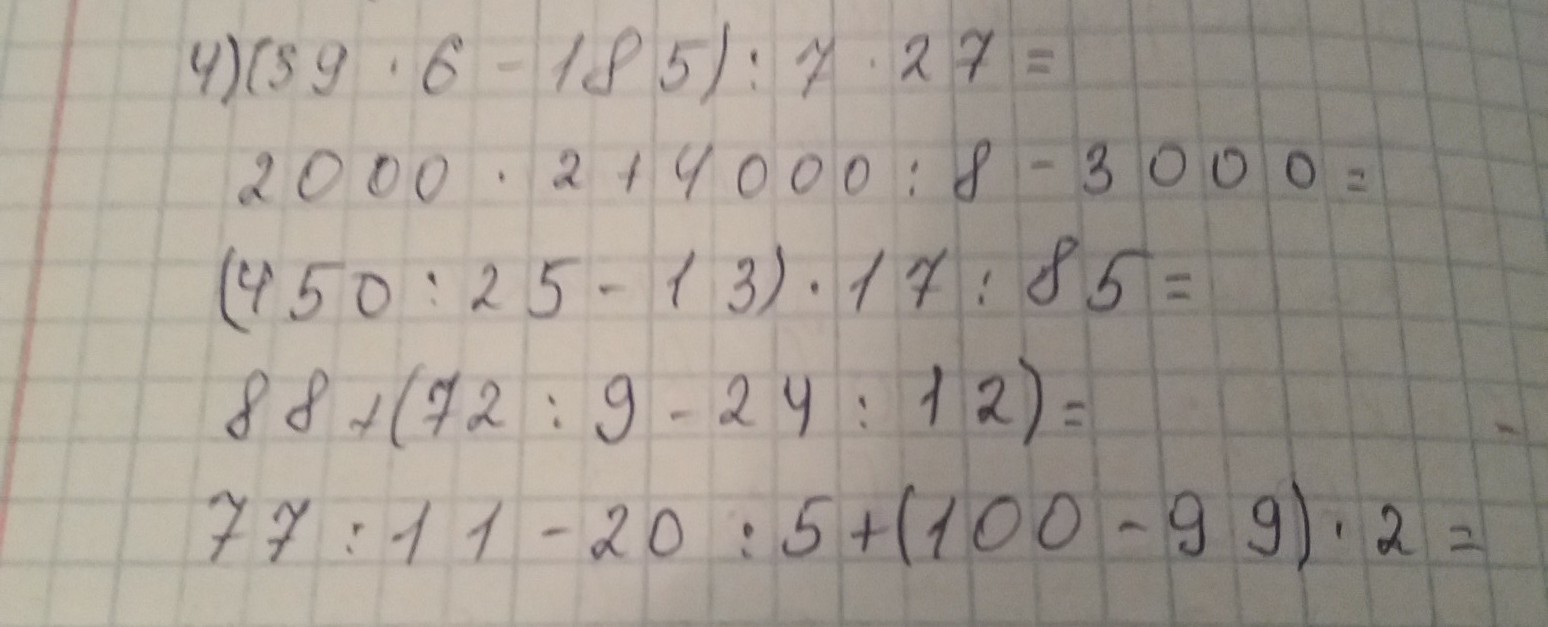 4)(39 · 6 - 185) : 7 · 27 =
2000 · 2 + 4000 : 8 - 3000 =
(450 : 25 - 13) · 17 : 85 =
88 + (72 : 9 - 24 : 12) =
77 : 11 - 20 : 5 + (100 - 99) · 2 =